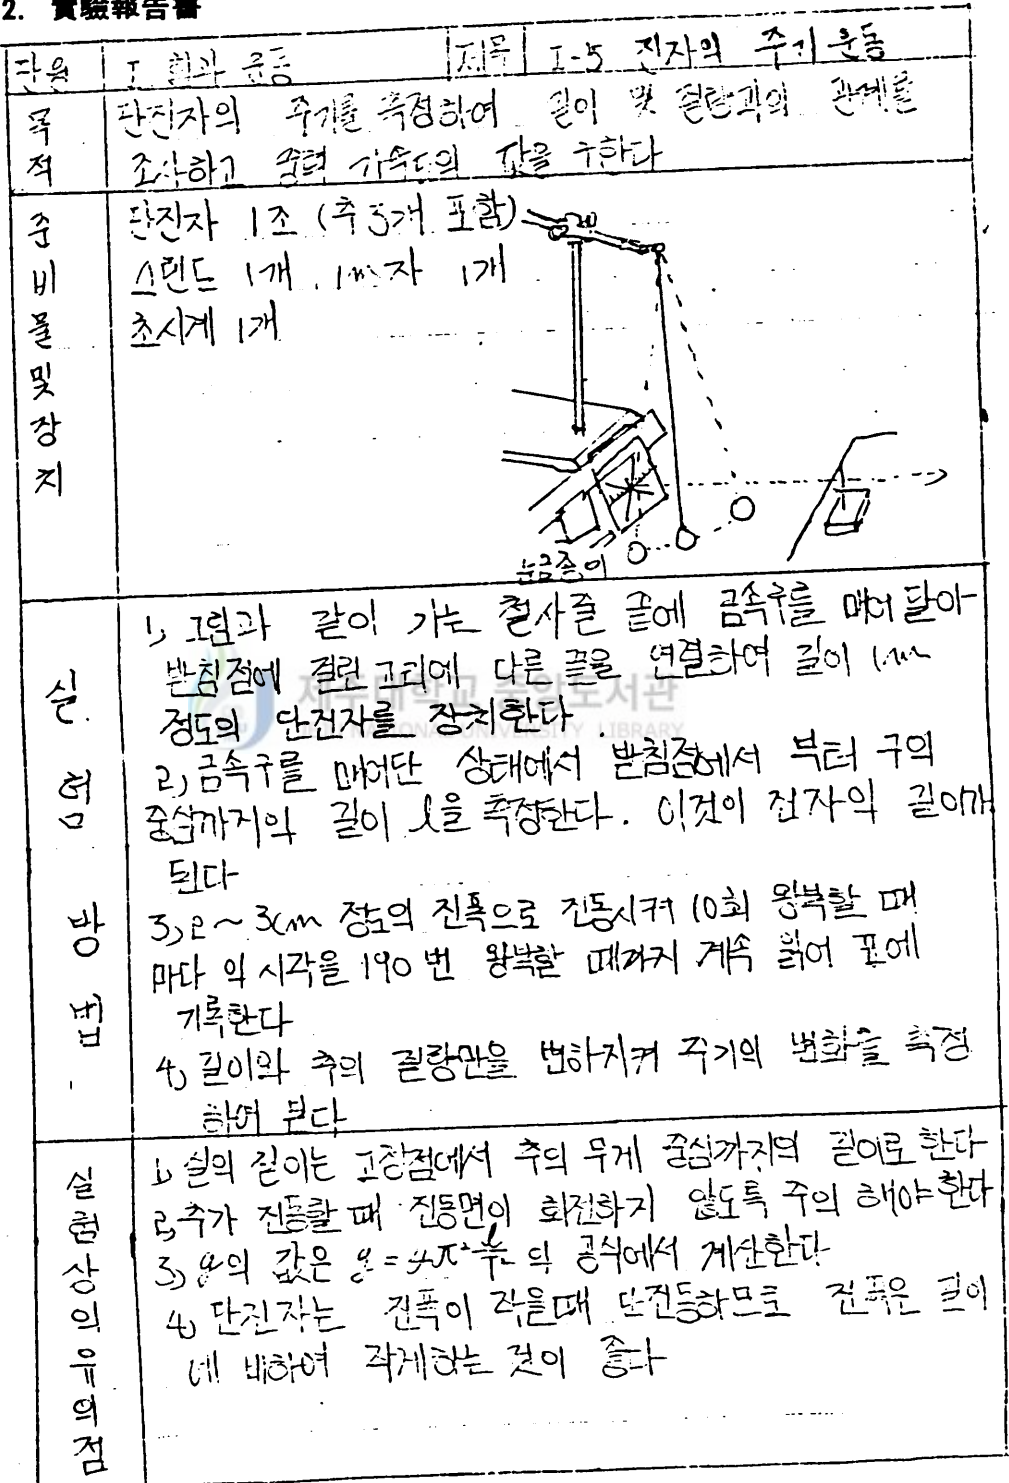 2. 實驗報告書
단원 I 힘과 운동 제목 I-5 진자의 주기 운동
목적
단진자의 주기를 측정하여 길이 및 질량과의 관계를
조사하고 중력 가속도의 값을 구한다
준비물 및 장치
단진자 1조 (추 5개 포함)
스텐드 1개, 1m자 1개
초시계 1개
눈금종이
실험방법
1) 그림과 같이 가는 철사줄 끝에 금속구를 매어 달아
받침점에 걸린 고리에 다른 끝을 연결하여 길이 1m
정도의 단진자를 장치한다.
2) 금속구를 매어단 상태에서 받침점에서 부터 구의
중심까지의 길이 l을 측정한다. 이것이 진자의 길이가
된다
3) 2~3cm 정도의 진폭으로 진동시켜 10회 왕복할 때
마다 의 시각을 190번 왕복할 때까지 계속 읽어 표에
기록한다
4) 길이와 추의 질량만을 변하시켜 주기의 변화를 측정
하여 본다
실험상의 유의점
1) 실의 길이는 고정점에서 추의 무게 중심까지의 길이로 한다
2) 추가 진동할 때 진동면이 회전하지 않도록 주의 해야 한다
3) g의 값은 g=4π² l/T² 의 공식에서 계산한다
4) 단진자는 진폭이 작을때 단진동하므로 진폭은 길이
에 비하여 작게하는 것이 좋다
제주대학교 중앙도서관
NATIONAL UNIVERSITY LIBRARY